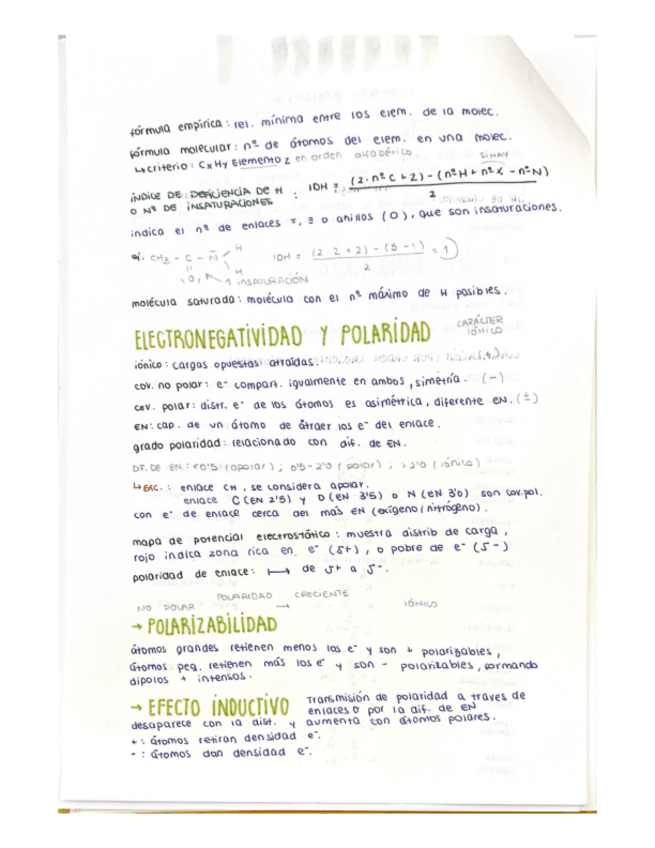 fórmula empírica: rel. mínima entre los elem. de la molec.
fórmula molecular: nº de átomos del elem. en una molec.
↳criterio: CxHy Elemento z en orden alfabético.
si hay
ÍNDICE DE DEFICIENCIA DE H
O Nº DE INSATURACIONES : IDH = (2·nºC + 2) - (nºH + nºX - nºN) / 2
indica el nº de enlaces =, ≡ o anillos (O), que son insaturaciones.
ej. CH3 - C - N̄ - H
IDH = (2·2+2) - (5-1) / 2 = 1
H
1 INSATURACIÓN
molécula saturada: molécula con el nº máximo de H posibles.
ELECTRONEGATIVIDAD Y POLARIDAD
CARÁCTER
IÓNICO
iónico: cargas opuestas atraídas.
cov. no polar: e⁻ compart. igualmente en ambos, simetría. (-)
cov. polar: distr. e⁻ de los átomos es asimétrica, diferente EN. (±)
EN: cap. de un átomo de atraer los e⁻ del enlace.
grado polaridad: relacionado con dif. de EN.
DIF. DE EN: <0'5 (apolar); 0'5-2'0 (polar); >2'0 (iónico)
↳EXC.: enlace CH, se considera apolar.
enlace C (EN 2'5) y O (EN 3'5) o N (EN 3'0) son cov. pol.
con e⁻ de enlace cerca del más EN (oxígeno/nitrógeno).
mapa de potencial electrostático: muestra distrib de carga,
rojo indica zona rica en e⁻ (δ+), o pobre de e⁻ (δ-)
polaridad de enlace: ↦ de δ+ a δ-.
POLARIDAD CRECIENTE
NO POLAR → IÓNICO
→ POLARIZABILIDAD
átomos grandes retienen menos los e⁻ y son + polarizables,
átomos peq. retienen más los e⁻ y son - polarizables, formando
dipolos + intensos.
→ EFECTO INDUCTIVO Transmisión de polaridad a través de
enlaces σ por la dif. de EN
desaparece con la dist. y aumenta con átomos polares.
+: átomos retiran densidad e⁻.
-: átomos dan densidad e⁻.